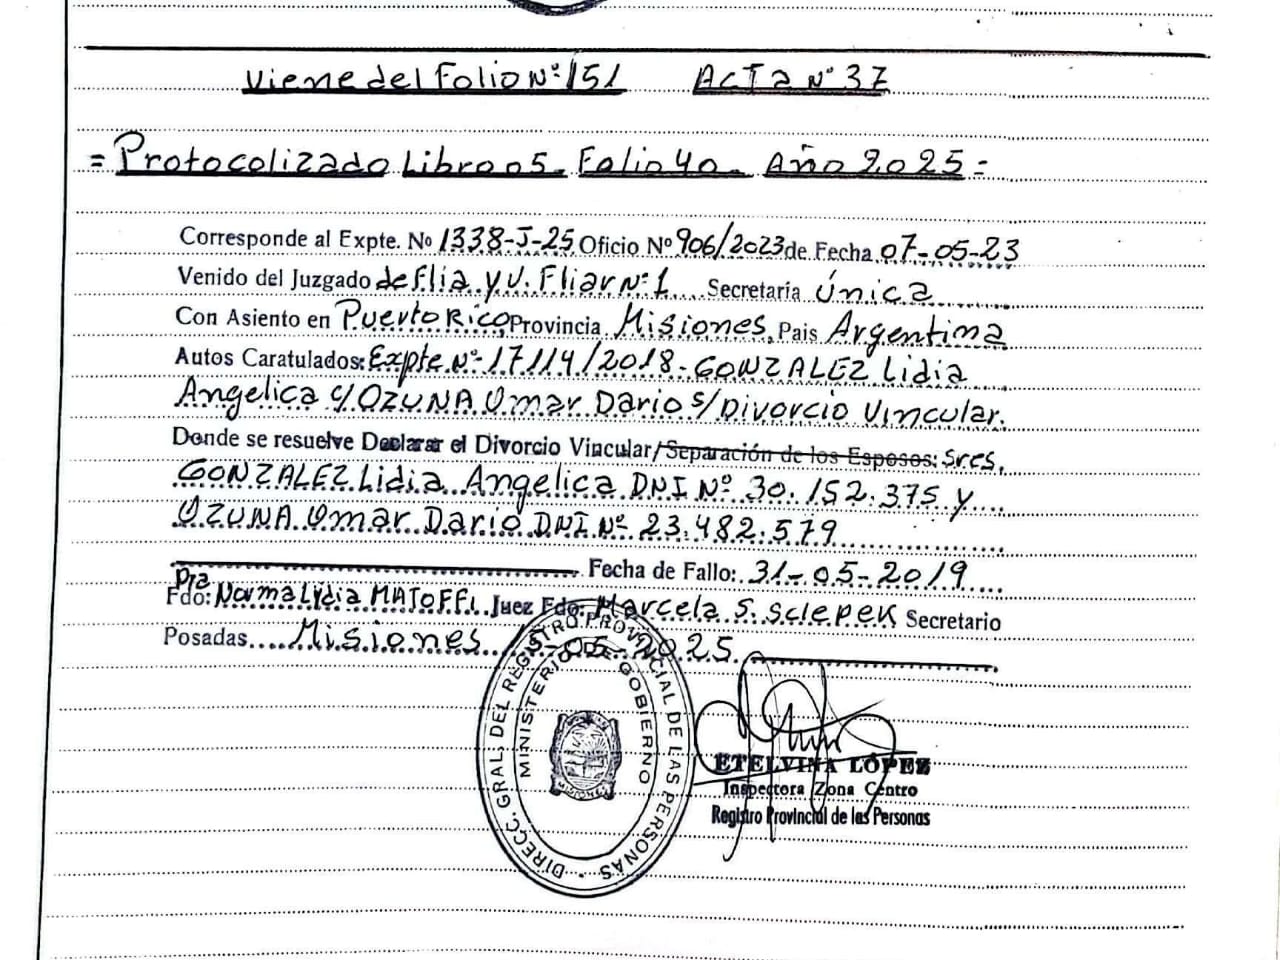 Viene del Folio Nº 151 Acta Nº 37
= Protocolizado Libro 05 - Folio 40 - Año 2025 =
Corresponde al Expte. Nº 1338-J-25 Oficio Nº 906/2023 de Fecha 07-05-23
Venido del Juzgado de Flia. y V. Fliar Nº 1 Secretaría Única
Con Asiento en Puerto Rico, Provincia Misiones, Pais Argentina
Autos Caratulados: Expte Nº 17114/2018 - GONZALEZ Lidia
Angelica c/ OZUNA Omar Dario s/ Divorcio Vincular.
Donde se resuelve Declarar el Divorcio Vincular/Separación de los Esposos: Sres.
GONZALEZ Lidia Angelica DNI Nº 30.152.375 y
OZUNA Omar Dario DNI Nº 23.482.579
Fecha de Fallo: 31-05-2019
Fdo: Dra Norma Lidia MATOFFI Juez Fdo: Marcela S. Sclepek Secretario
Posadas Misiones -05-2025.
DIRECC. GRAL. DEL REGISTRO PROVINCIAL DE LAS PERSONAS
MINISTERIO DE GOBIERNO
MISIONES
ETELVINA LÓPEZ
Inspectora Zona Centro
Registro Provincial de las Personas